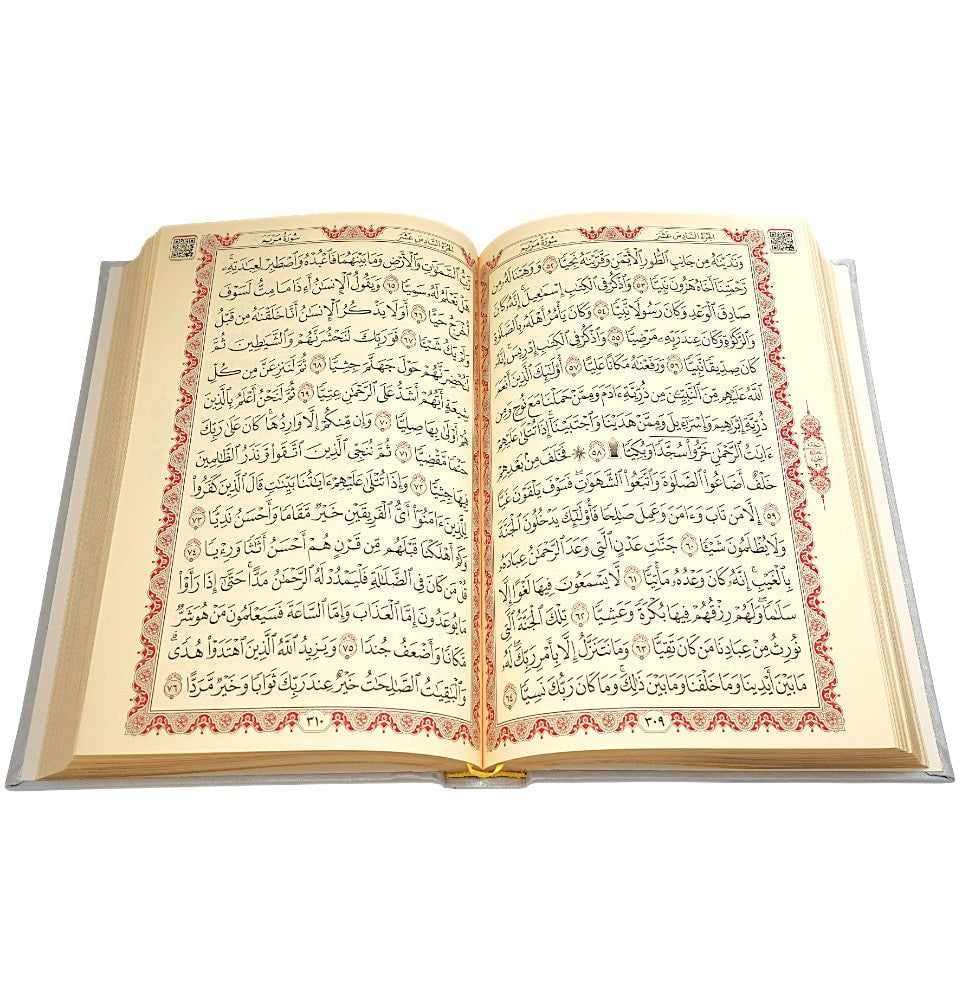 الجزء السادس عشر
سورة مريم
وَنَٰدَيْنَٰهُ مِن جَانِبِ ٱلطُّورِ ٱلْأَيْمَنِ وَقَرَّبْنَٰهُ نَجِيًّا ٥٢ وَوَهَبْنَا لَهُۥ مِن
رَّحْمَتِنَآ أَخَاهُ هَٰرُونَ نَبِيًّا ٥٣ وَٱذْكُرْ فِى ٱلْكِتَٰبِ إِسْمَٰعِيلَ ۚ إِنَّهُۥ كَانَ
صَادِقَ ٱلْوَعْدِ وَكَانَ رَسُولًا نَّبِيًّا ٥٤ وَكَانَ يَأْمُرُ أَهْلَهُۥ بِٱلصَّلَوٰةِ
وَٱلزَّكَوٰةِ وَكَانَ عِندَ رَبِّهِۦ مَرْضِيًّا ٥٥ وَٱذْكُرْ فِى ٱلْكِتَٰبِ إِدْرِيسَ ۚ إِنَّهُۥ
كَانَ صِدِّيقًا نَّبِيًّا ٥٦ وَرَفَعْنَٰهُ مَكَانًا عَلِيًّا ٥٧ أُو۟لَٰٓئِكَ ٱلَّذِينَ أَنْعَمَ
ٱللَّهُ عَلَيْهِم مِّنَ ٱلنَّبِيِّۦنَ مِن ذُرِّيَّةِ ءَادَمَ وَمِمَّنْ حَمَلْنَا مَعَ نُوحٍ وَمِن
ذُرِّيَّةِ إِبْرَٰهِيمَ وَإِسْرَٰٓءِيلَ وَمِمَّنْ هَدَيْنَا وَٱجْتَبَيْنَآ ۚ إِذَا تُتْلَىٰ عَلَيْهِمْ
ءَايَٰتُ ٱلرَّحْمَٰنِ خَرُّوا۟ سُجَّدًا وَبُكِيًّا ۩ ٥٨ فَخَلَفَ مِنۢ بَعْدِهِمْ
خَلْفٌ أَضَاعُوا۟ ٱلصَّلَوٰةَ وَٱتَّبَعُوا۟ ٱلشَّهَوَٰتِ ۖ فَسَوْفَ يَلْقَوْنَ غَيًّا
٥٩ إِلَّا مَن تَابَ وَءَامَنَ وَعَمِلَ صَٰلِحًا فَأُو۟لَٰٓئِكَ يَدْخُلُونَ ٱلْجَنَّةَ
وَلَا يُظْلَمُونَ شَيْـًٔا ٦٠ جَنَّٰتِ عَدْنٍ ٱلَّتِى وَعَدَ ٱلرَّحْمَٰنُ عِبَادَهُۥ
بِٱلْغَيْبِ ۚ إِنَّهُۥ كَانَ وَعْدُهُۥ مَأْتِيًّا ٦١ لَّا يَسْمَعُونَ فِيهَا لَغْوًا إِلَّا
سَلَٰمًا ۖ وَلَهُمْ رِزْقُهُمْ فِيهَا بُكْرَةً وَعَشِيًّا ٦٢ تِلْكَ ٱلْجَنَّةُ ٱلَّتِى
نُورِثُ مِنْ عِبَادِنَا مَن كَانَ تَقِيًّا ٦٣ وَمَا نَتَنَزَّلُ إِلَّا بِأَمْرِ رَبِّكَ ۖ لَهُۥ
مَا بَيْنَ أَيْدِينَا وَمَا خَلْفَنَا وَمَا بَيْنَ ذَٰلِكَ ۚ وَمَا كَانَ رَبُّكَ نَسِيًّا ٦٤
٣٠٩
الجزء السادس عشر
سورة مريم
رَّبُّ ٱلسَّمَٰوَٰتِ وَٱلْأَرْضِ وَمَا بَيْنَهُمَا فَٱعْبُدْهُ وَٱصْطَبِرْ لِعِبَٰدَتِهِۦ ۚ
هَلْ تَعْلَمُ لَهُۥ سَمِيًّا ٦٥ وَيَقُولُ ٱلْإِنسَٰنُ أَءِذَا مَا مِتُّ لَسَوْفَ
أُخْرَجُ حَيًّا ٦٦ أَوَلَا يَذْكُرُ ٱلْإِنسَٰنُ أَنَّا خَلَقْنَٰهُ مِن قَبْلُ
وَلَمْ يَكُ شَيْـًٔا ٦٧ فَوَرَبِّكَ لَنَحْشُرَنَّهُمْ وَٱلشَّيَٰطِينَ ثُمَّ
لَنُحْضِرَنَّهُمْ حَوْلَ جَهَنَّمَ جِثِيًّا ٦٨ ثُمَّ لَنَنزِعَنَّ مِن كُلِّ
شِيعَةٍ أَيُّهُمْ أَشَدُّ عَلَى ٱلرَّحْمَٰنِ عِتِيًّا ٦٩ ثُمَّ لَنَحْنُ أَعْلَمُ بِٱلَّذِينَ
هُمْ أَوْلَىٰ بِهَا صِلِيًّا ٧٠ وَإِن مِّنكُمْ إِلَّا وَارِدُهَا ۚ كَانَ عَلَىٰ رَبِّكَ
حَتْمًا مَّقْضِيًّا ٧١ ثُمَّ نُنَجِّى ٱلَّذِينَ ٱتَّقَوا۟ وَّنَذَرُ ٱلظَّٰلِمِينَ
فِيهَا جِثِيًّا ٧٢ وَإِذَا تُتْلَىٰ عَلَيْهِمْ ءَايَٰتُنَا بَيِّنَٰتٍ قَالَ ٱلَّذِينَ كَفَرُوا۟
لِلَّذِينَ ءَامَنُوٓا۟ أَىُّ ٱلْفَرِيقَيْنِ خَيْرٌ مَّقَامًا وَأَحْسَنُ نَدِيًّا ٧٣
وَكَمْ أَهْلَكْنَا قَبْلَهُم مِّن قَرْنٍ هُمْ أَحْسَنُ أَثَٰثًا وَرِءْيًا ٧٤
قُلْ مَن كَانَ فِى ٱلضَّلَٰلَةِ فَلْيَمْدُدْ لَهُ ٱلرَّحْمَٰنُ مَدًّا ۚ حَتَّىٰٓ إِذَا رَأَوْا۟
مَا يُوعَدُونَ إِمَّا ٱلْعَذَابَ وَإِمَّا ٱلسَّاعَةَ فَسَيَعْلَمُونَ مَنْ هُوَ شَرٌّ
مَّكَانًا وَأَضْعَفُ جُندًا ٧٥ وَيَزِيدُ ٱللَّهُ ٱلَّذِينَ ٱهْتَدَوْا۟ هُدًى ۗ
وَٱلْبَٰقِيَٰتُ ٱلصَّٰلِحَٰتُ خَيْرٌ عِندَ رَبِّكَ ثَوَابًا وَخَيْرٌ مَّرَدًّا ٧٦
٣١٠